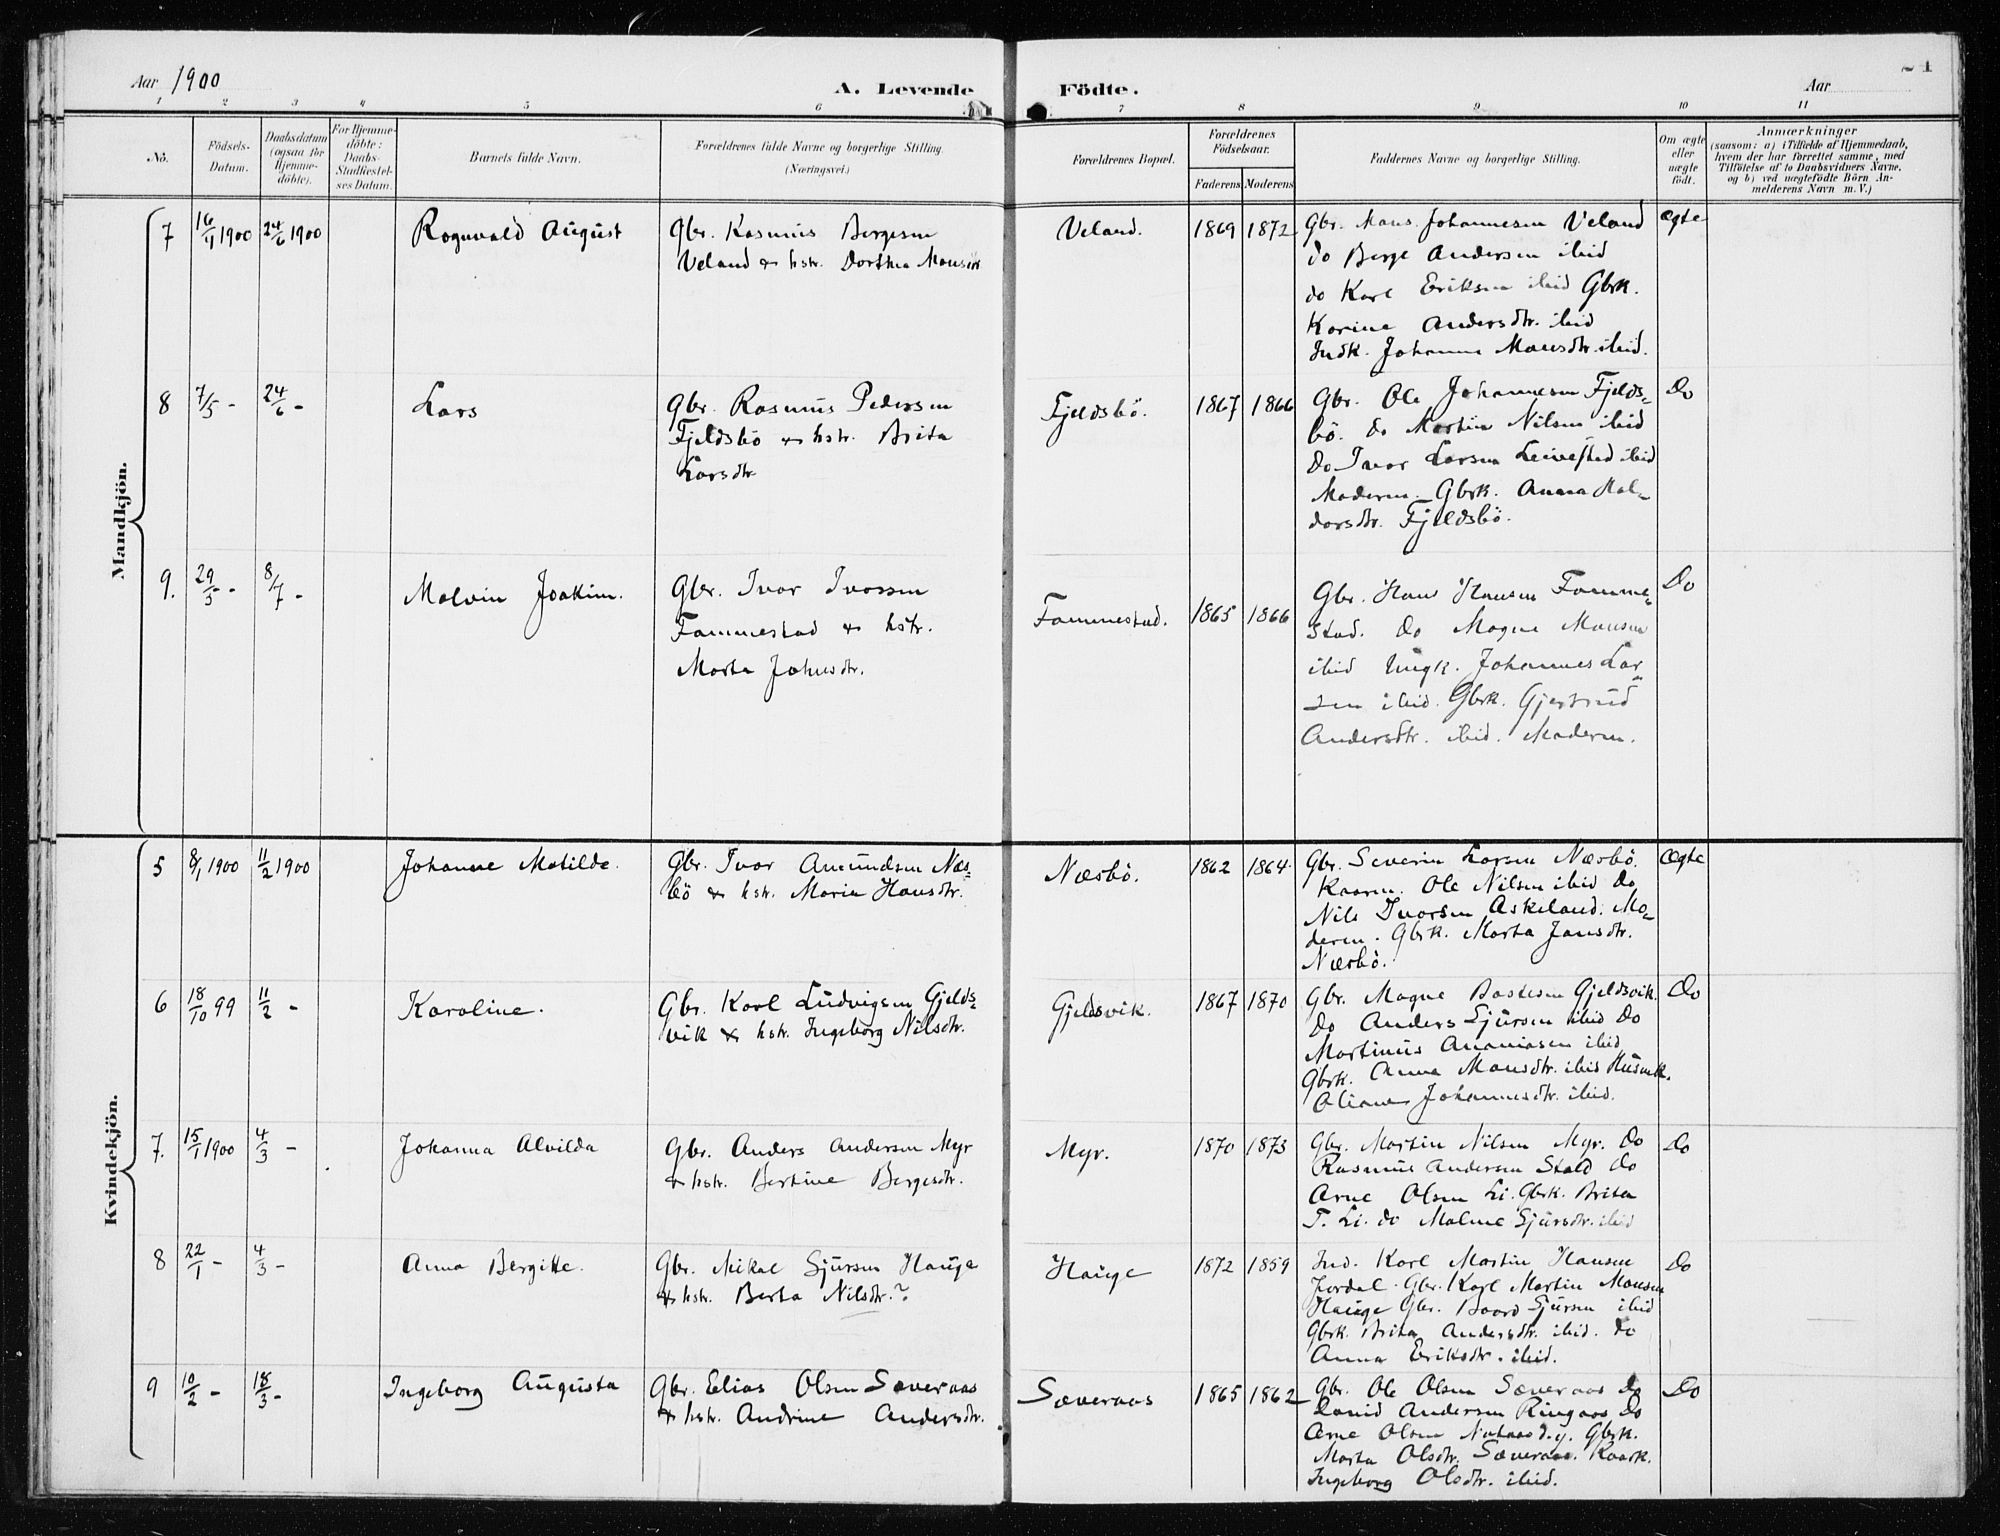 Aar 1900
A. Levende Födte.
21
Aar
1 2 3 4 5 6 7 8 9 10 11
No.
Födsels-
Datum.
Daabsdatum
(ogsaa for
Hjemme-
döbte).
For Hjemme-
döbte:
Daabs-
Stadfæstel-
ses Datum.
Barnets fulde Navn.
Forældrenes fulde Navne og borgerlige Stilling.
(Næringsvei.)
Forældrenes Bopæl.
Forældrenes
Födselsaar.
Faderens Moderens
Faddernes Navne og borgerlige Stilling.
Om ægte
eller
uægte
födt.
Anmærkninger
(saasom: a) i Tilfælde af Hjemmedaab,
hvem der har forrettet samme, med
Tilföielse af to Daabsvidners Navne,
og b) ved uægtefödte Börn An-
melderens Navn m. V.)
Mandkjön.
7
16/4 1900
24/6 1900
Rognvald August
Gbr. Rasmus Bergesen
Veland & hstr. Dorthea Mansdtr
Veland.
1869
1872
Gbr. Mans Johannesen Veland
do Berge Andersen ibid
do Karl Eriksen ibid Gbrk.
Karine Andersdtr. ibid
Indk. Johanna Mansdtr. ibid.
ægte
8
7/5 -
24/6 -
Lars
Gbr. Rasmus Pedersen
Fjeldsbö & hstr. Brita
Larsdtr
Fjeldsbö.
1867
1866
Gbr. Ole Johannesen Fjelds-
bö. do Martin Nilsen ibid
do Ivar Larsen Leivestad ibid
Moderen. Gbrk. Anna Hal-
dorsdtr. Fjeldsbö.
Do
9.
29/5 -
8/7 -
Malvin Joakim.
Gbr. Ivar Ivarsen
Fammestad & hstr.
Marta Johnsdtr.
Fammestad.
1865
1866
Gbr. Hans Hansen Famme-
stad. do Magne Mansen
ibid Ungk. Johannes Lar-
sen ibid. Gbrk. Gjertrud
Andersdtr. ibid. Moderen.
Do
Kvindekjön.
5
8/1 1900
11/2 1900
Johanne Matilde.
Gbr. Ivar Amundsen Næs-
bö & hstr. Maria Hansdtr.
Næsbö.
1862
1864
Gbr. Severin Larsen Næsbö.
Kaarm. Ole Nilsen ibid Do
Nils Ivarsen Askeland. Mo-
deren. Gbrk. Marta Jansdtr.
Næsbö.
Ægte
6
18/10 99
11/2 -
Karoline.
Gbr. Karl Ludvigsen Gjelds-
vik & hstr. Ingeborg Nilsdtr.
Gjeldsvik.
1867
1870
Gbr. Magne Bastesen Gjeldsvik.
Do Anders Sjursen ibid Do
Martinus Ananiasen ibid
Gbrk. Anna Mansdtr. ibid Husmk.
Oliane Johannesdtr. ibid.
Do
7.
15/1 1900
4/3 -
Johanna Alvilda
Gbr. Anders Andersen Myr
& hstr. Bertine Bergesdtr.
Myr.
1870
1873
Gbr. Martin Nilsen Myr. Do
Rasmus Andersen Stald do
Arne Olsen Li. Gbrk. Brita
T. Li. do Malene Sjursdtr. ibid
Do
8
22/1 -
4/3 -
Anna Bergitte.
Gbr. Mikal Sjursen Hauge
& hstr. Berta Nilsdtr.?
Hauge
1872
1859
Ind. Karl Martin Hansen
Jordal. Gbr. Karl Martin Mansen
Hauge Gbr. Baard Sjursen ibid
Gbrk. Brita Andersdtr. ibid. do
Anna Eriksdtr. ibid.
Do
9
10/2 -
18/3 -
Ingeborg Augusta
Gbr. Elias Olsen Sæveraas
& hstr. Andrine Andersdtr.
Sæveraas
1865
1862
Gbr. Ole Olsen Sæveraas Do
David Andersen Ringaas Do
Arne Olsen Nataas d.y. Gbrk.
Marta Olsdtr. Sæveraas. Kaark.
Ingeborg Olsdtr. ibid.
Do